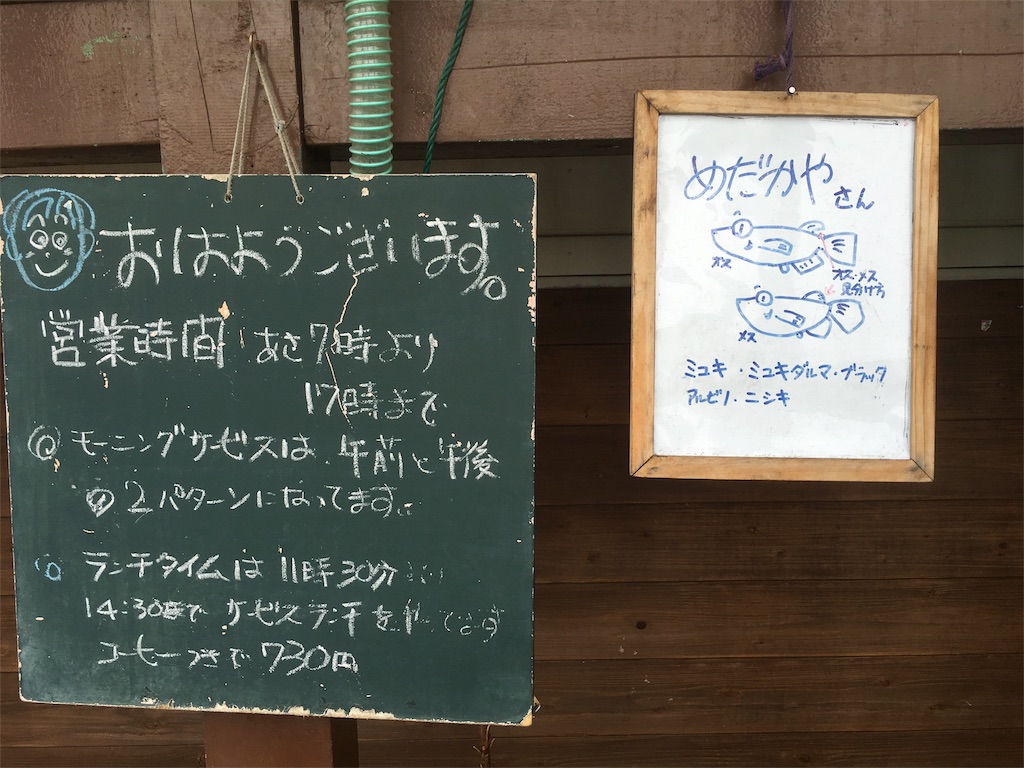 おはようございます。
営業時間 あさ7時より
17時まで
◎ モーニングサービスは 午前と午後
の2パターンになってます。
◎ ランチタイムは 11時30分
14:30まで サービスランチを やってます
コーヒーつきで 730円
めだかやさん
オス
オス・メス
見分け方
メス
ミユキ・ミユキダルマ・ブラック
アルビノ・ニシキ